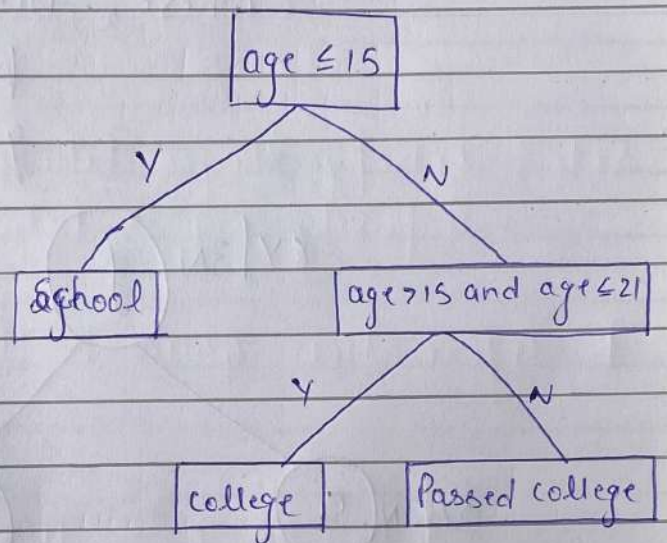 age ≤ 15
Y
N
School
age > 15 and age ≤ 21
Y
N
college
Passed college